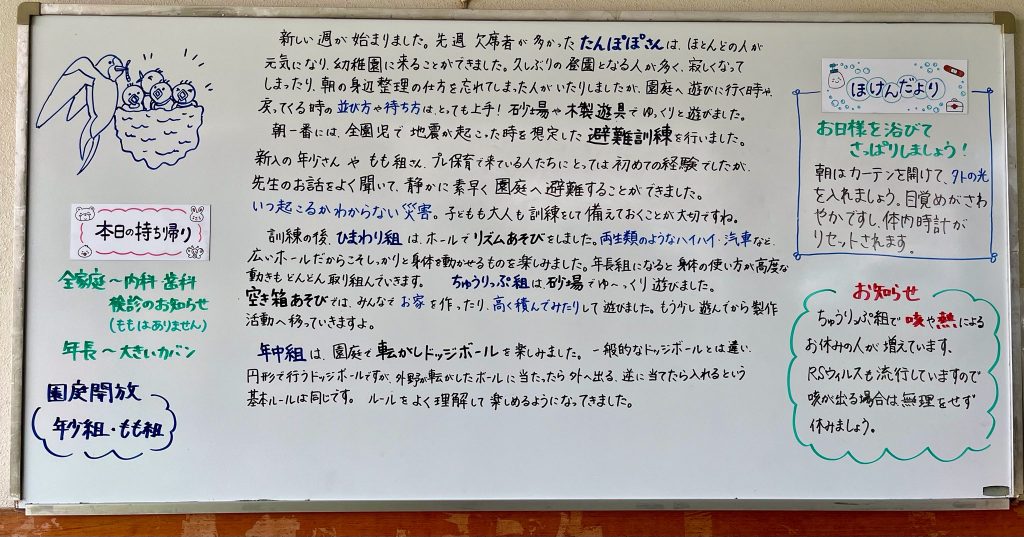 新しい週が始まりました。先週欠席者が多かったたんぽぽさんは、ほとんどの人が
元気になり、幼稚園に来ることができました。久しぶりの登園となる人が多く、寂しくなって
しまったり、朝の身辺整理の仕方を忘れてしまった人がいたりしましたが、園庭へ遊びに行く時や、
戻ってくる時の並び方や持ち方は、とっても上手！砂場や木製遊具でゆっくりと遊びました。
朝一番には、全園児で地震が起こった時を想定した避難訓練を行いました。
新入の年少さんやもも組さん、プレ保育で来ている人たちにとっては初めての経験でしたが、
先生のお話をよく聞いて、静かに素早く園庭へ避難することができました。
いつ起こるかわからない災害。子どもも大人も訓練をして備えておくことが大切ですね。
訓練の後、ひまわり組は、ホールでリズムあそびをしました。両生類のようなハイハイ・汽車など、
広いホールだからこそしっかりと身体を動かせるものを楽しみました。年長組になると身体の使い方が高度な
動きもどんどん取り組んでいきます。 ちゅうりっぷ組は、砂場でゆ〜っくり遊びました。
空き箱あそびでは、みんなでお家を作ったり、高く積んでみたりして遊びました。もう少し遊んでから製作
活動へ移っていきますよ。
年中組は、園庭で転がしドッジボールを楽しみました。一般的なドッジボールとは違い、
円形で行うドッジボールですが、外野が転がしたボールに当たったら外へ出る、逆に当てたら入れるという
基本ルールは同じです。 ルールをよく理解して楽しめるようになってきました。
本日の持ち帰り
全家庭〜内科 歯科
検診のお知らせ
(ももはありません)
年長〜大きいカバン
園庭開放
年少組・もも組
ほけんだより
お日様を浴びて
さっぱりしましょう！
朝はカーテンを開けて、外の光
を入れましょう。目覚めがさわ
やかですし、体内時計が
リセットされます。
お知らせ
ちゅうりっぷ組で咳や熱による
お休みの人が増えています。
RSウィルスも流行していますので
咳が出る場合は無理をせず
休みましょう。